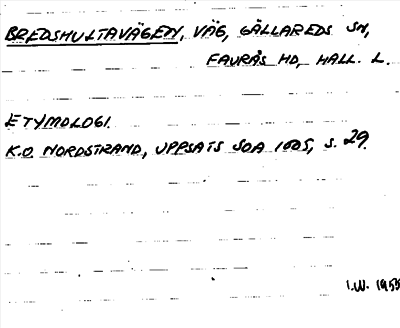 BREDSHULTAVÄGEN, VÄG, GÄLLAREDS SN,
FAURÅS HD, HALL. L.
ETYMOLOGI.
K.O. NORDSTRAND, UPPSATS SOA 1605, S. 29.
I.W. 1955